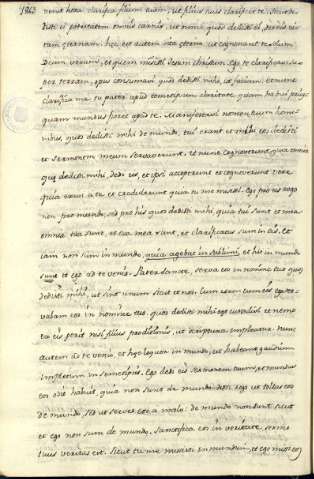 1863
venit hora clarifica filium tuum, ut filius tuus clarificet te. Sicut de
disti ei potestatem omnis carnis, ut omne quod dedisti ei det eis vi
tam eternam. Hęc est autem vita eterna ut cognoscant te solum
Deum verum, et quem misisti Jesum christum. Ego te clarificavi su
per terram, opus consumavi quod dedisti mihi, ut faciam. et nunc
clarifica me tu pater apud temetipsum claritate, quam habui prius
quam mundus foret apud te. Manifestavi nomen tuum homi
nibus, quos dedisti mihi de mundo, tui erant et mihi eos dedisti
et sermonem meum servaverunt. et nunc cognoverunt quia omnia
quę dedisti mihi, sunt, et ipsi acceperunt et cognoverunt vere
quia exivi a te et crediderunt quia tu me misisti. Ego pro eis rogo
non pro mundo, sed pro his quos dedisti mihi, quia tui sunt et mea
omnia tua sunt, et tua mea sunt, et clarificatus sum in eis. et
iam non sum in mundo, quia agebat in sublimi, et hi in mundo
sunt et ego ad te venio. Pater sancte, serva eos in nomine tuo quos
dedisti mihi, ut sint unum sicut et nos. Cum essem cum eis ego ser
vabam eos in nomine tuo. quos dedisti mihi ego custodivi et nemo
ex eis periit nisi filius perditionis, ut scriptura impleatur. Nunc
autem ad te venio, et hęc loquor in mundo, ut habeant gaudium
impletum in semetipsis. Ego dedi eis sermonem tuum, et mundus
eos odio habuit quia non sunt de mundo. non rogo ut tollas eos
de mundo, sed ut serves eos a malo. de mundo non sunt sicut
et ego non sum de mundo. Sanctifica eos in veritate. sermo
tuus veritas est. Sicut tu me misisti in mundum, et ego misi eos